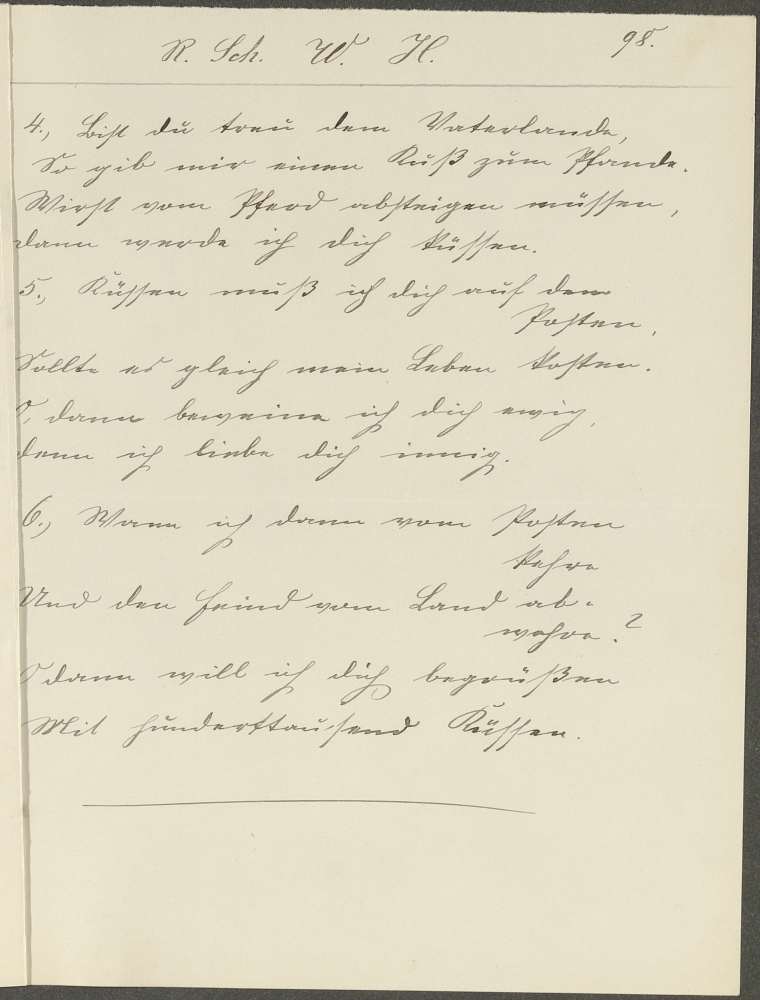 R. Sch. W. H. 98.
4., Bist du treu dem Vaterlande,
So gib mir einen Kuß zum Pfande.
Wirst vom Pferd absteigen müssen,
dann werde ich dich küssen.
5., Küssen muß ich dich auf dem
Posten,
Sollte es gleich mein Leben kosten.
O, dann beweine ich dich ewig,
denn ich liebe dich innig.
6., Wann ich dann vom Posten
kehre
Und den Feind vom Land ab-
wehre.?
O dann will ich dich begrüßen
Mit hunderttausend Küssen.